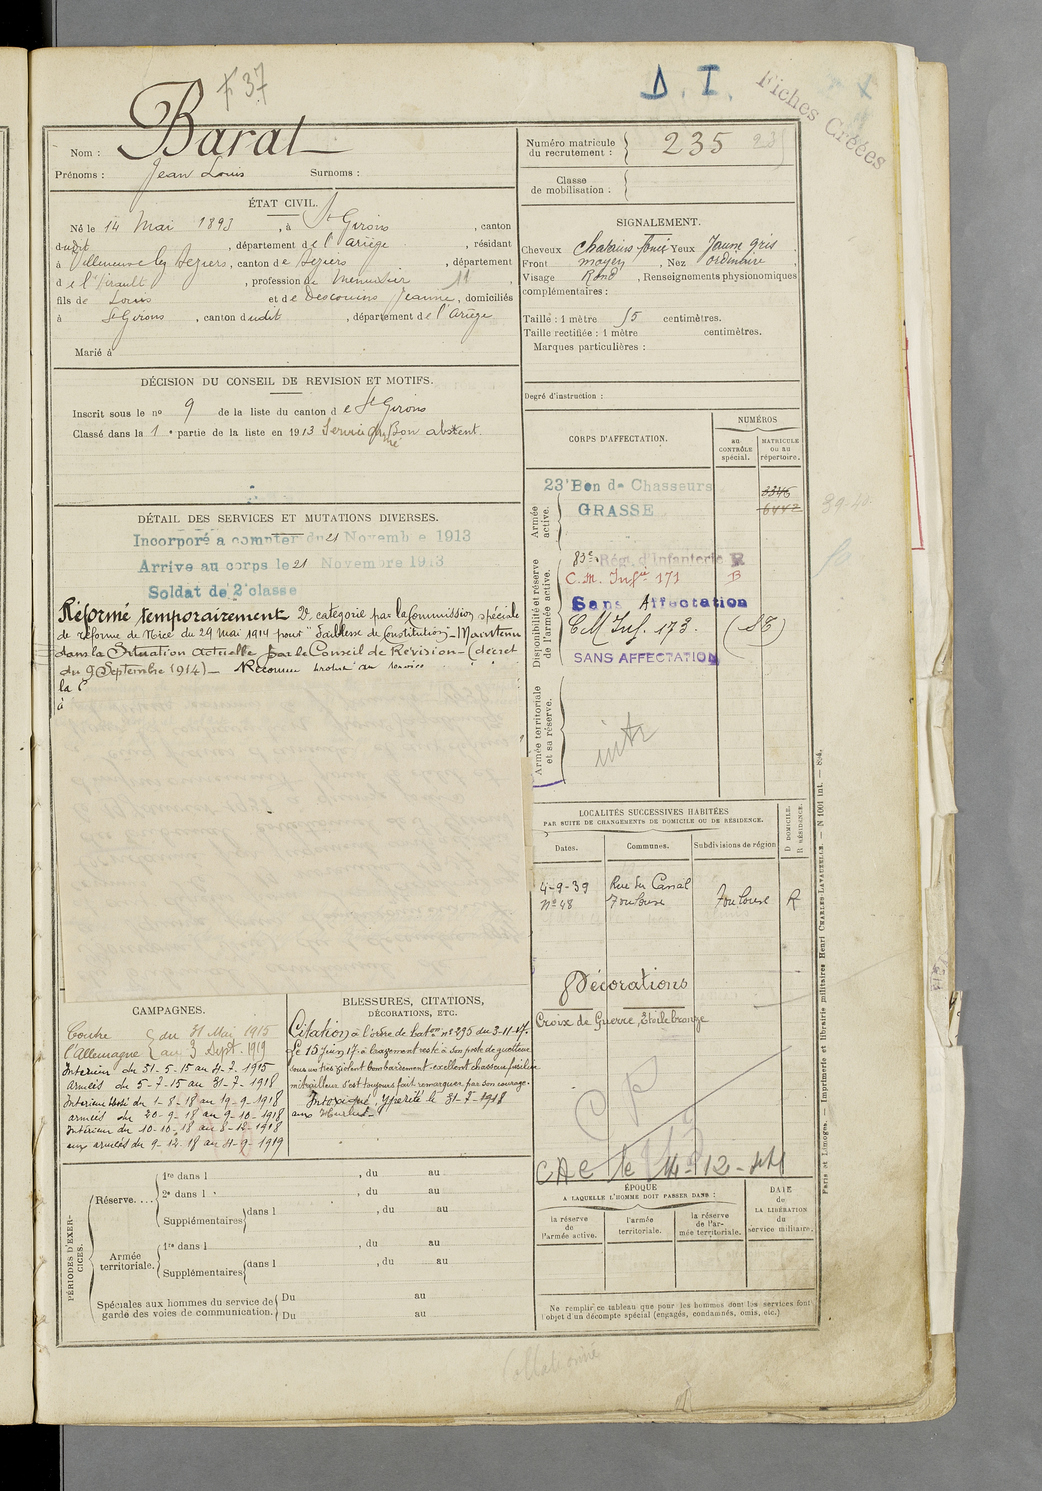 F 37
D. I.
Fiches Créées
Nom : Barat
Prénoms : Jean Louis Surnoms :
Numéro matricule du recrutement : 235
Classe de mobilisation :
ÉTAT CIVIL.
Né le 14 Mai 1893, à St Girons, canton
dudit, département de l'Ariège, résidant
à Villeneuve les Beziers, canton de Beziers, département
de l'Hérault, profession de Menuisier 11,
fils de Louis et de Descouins Jeanne, domiciliés
à St Girons, canton dudit, département de l'Ariège
Marié à
SIGNALEMENT.
Cheveux chatains foncé Yeux Jaune gris
Front moyen, Nez ordinaire,
Visage Rond, Renseignements physionomiques
complémentaires :
Taille : 1 mètre 55 centimètres.
Taille rectifiée : 1 mètre centimètres.
Marques particulières :
Degré d'instruction :
DÉCISION DU CONSEIL DE REVISION ET MOTIFS.
Inscrit sous le no 9 de la liste du canton de St Girons
Classé dans la 1e partie de la liste en 1913 Service armé Bon absent.
CORPS D'AFFECTATION.
NUMÉROS
au CONTRÔLE spécial.
MATRICULE ou au répertoire.
Armée active.
23e Bon de Chasseurs 3346
GRASSE 6442
39-40
Disponibilité et réserve de l'armée active.
83e Régt d'Infanterie R
C. M. Infie 171 B
Sans Affectation
C M Inf. 173. (SE)
SANS AFFECTATION
Armée territoriale et sa réserve.
DÉTAIL DES SERVICES ET MUTATIONS DIVERSES.
Incorporé à compter du 21 Novembre 1913
Arrivé au corps le 21 Novembre 1913
Soldat de 2e classe
Réformé temporairement 2e catégorie par la Commission spéciale
de réforme de Nice du 29 Mai 1914 pour "Faiblesse de Constitution" - Maintenu
dans la Situation actuelle par le Conseil de Révision - (décret
du 9 Septembre 1914) - Reconnu
la C
à
LOCALITÉS SUCCESSIVES HABITÉES
PAR SUITE DE CHANGEMENTS DE DOMICILE OU DE RÉSIDENCE.
D DOMICILE.
R RÉSIDENCE.
Dates. Communes. Subdivisions de région
4-9-39 Rue du Canal
No 48 Toulouse Toulouse R
Décorations
Croix de Guerre, Etoile bronze
CAMPAGNES.
Contre { du 31 Mai 1915
l'Allemagne { au 3 Sept. 1919
Intérieur du 31-5-15 au 4-7-1915
armées du 5-7-15 au 31-7-1918
Intérieur blessé du 1-8-18 au 19-9-1918
armées du 20-9-18 au 9-10-1918
Intérieur du 10-10-18 au 8-12-1918
aux armées du 9-12-18 au 4-9-1919
BLESSURES, CITATIONS,
DÉCORATIONS, ETC.
Citation à l'ordre du Baton no 295 du 3-11-17.
Le 15 Juin 17 à resté à son poste de guetteur
sous un très violent bombardement - excellent chasseur fusilier
mitrailleur s'est toujours fait remarquer par son courage.
Intoxiqué, ypérité le 31-7-1918
aux
C P
CAC le 14-12-44
PÉRIODES D'EXERCICES.
Réserve....
1re dans l , du au
2e dans l , du au
Supplémentaires dans l , du au
Armée territoriale.
1re dans l , du au
Supplémentaires dans l , du au
Spéciales aux hommes du service de garde des voies de communication.
Du au
Du au
ÉPOQUE
A LAQUELLE L'HOMME DOIT PASSER DANS :
la réserve de l'armée active.
l'armée territoriale.
la réserve de l'armée territoriale.
DATE de LA LIBÉRATION du service militaire.
Ne remplir ce tableau que pour les hommes dont les services font
l'objet d'un décompte spécial (engagés, condamnés, omis, etc.)
Paris et Limoges. — Imprimerie et librairie militaires Henri CHARLES-LAVAUZELLE. — N 1001 int. — 894.
Collationné